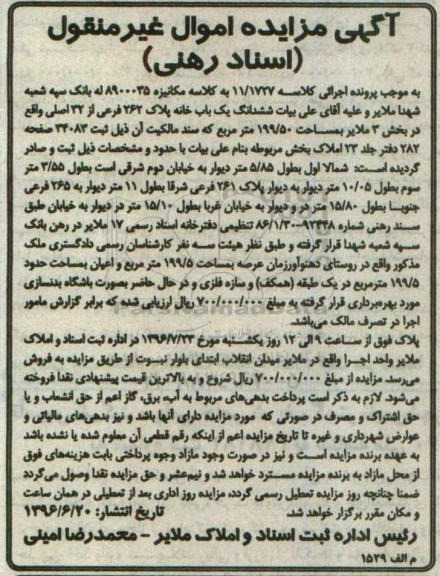 آگهی مزایده اموال غیرمنقول
(اسناد رهنی)
به موجب پرونده اجرائی کلاسه ۱۱/۱۷۲۷ به کلاسه مکانیزه ۸۹۰۰۰۳۵ له بانک سپه شعبه
شهدا ملایر و علیه آقای علی بیات ششدانگ یک باب خانه پلاک ۲۶۲ فرعی از ۳۲ اصلی واقع
در بخش ۳ ملایر بمساحت ۱۹۹/۵۰ متر مربع که سند مالکیت آن ذیل ثبت ۳۴۰۸۳ صفحه
۲۸۲ دفتر جلد ۲۳ املاک بخش مربوطه بنام علی بیات با حدود و مشخصات ذیل ثبت و صادر
گردیده است: شمالا اول بطول ۵/۸۵ متر دیوار به خیابان دوم شرقی است بطول ۳/۵۵ متر
سوم بطول ۱۰/۰۵ متر دیوار به دیوار پلاک ۲۶۱ فرعی شرقا بطول ۱۱ متر دیوار به ۲۶۵ فرعی
جنوبا بطول ۱۵/۸۰ متر در و دیوار به خیابان غربا بطول ۱۵/۱۰ متر در دیوار به خیابان طبق
سند رهنی شماره ۹۲۳۳۸-۸۶/۱/۳۰ تنظیمی دفترخانه اسناد رسمی ۱۷ ملایر در رهن بانک
سپه شعبه شهدا قرار گرفته و طبق نظر هیئت سه نفر کارشناسان رسمی دادگستری ملک
مذکور واقع در روستای دهنوآورزمان عرصه بمساحت ۱۹۹/۵ متر مربع و اعیان بمساحت حدود
۱۹۹/۵ مترمربع در یک طبقه (همکف) و سازه فلزی و در حال حاضر بصورت باشگاه بدنسازی
مورد بهره‌برداری قرار گرفته به مبلغ ۷۰۰/۰۰۰/۰۰۰ ریال ارزیابی شده که برابر گزارش مامور
اجرا در تصرف مالک می‌باشد.
پلاک فوق از ساعت ۹ الی ۱۲ روز یکشنبه مورخ ۱۳۹۶/۷/۲۳ در اداره ثبت اسناد و املاک
ملایر واحد اجرا واقع در ملایر میدان انقلاب ابتدای بلوار نبوت از طریق مزایده به فروش
می‌رسد. مزایده از مبلغ ۷۰۰/۰۰۰/۰۰۰ ریال شروع و به بالاترین قیمت پیشنهادی نقدا فروخته
می‌شود. لازم به ذکر است پرداخت بدهی‌های مربوط به آب، برق، گاز اعم از حق انشعاب و یا
حق اشتراک و مصرف در صورتی که مورد مزایده دارای آنها باشد و نیز بدهی‌های مالیاتی و
عوارض شهرداری و غیره تا تاریخ مزایده اعم از اینکه رقم قطعی آن معلوم شده یا نشده باشد
به عهده برنده مزایده است و نیز در صورت وجود مازاد وجوه پرداختی بابت هزینه‌های فوق
از محل مازاد به برنده مزایده مسترد خواهد شد و نیم‌عشر و حق مزایده نقدا وصول می‌گردد
ضمنا چنانچه روز مزایده تعطیل رسمی گردد، مزایده روز اداری بعد از تعطیلی در همان ساعت
و مکان مقرر برگزار خواهد شد. تاریخ انتشار: ۱۳۹۶/۶/۲۰
رئیس اداره ثبت اسناد و املاک ملایر - محمدرضا امینی
م الف ۱۵۲۹